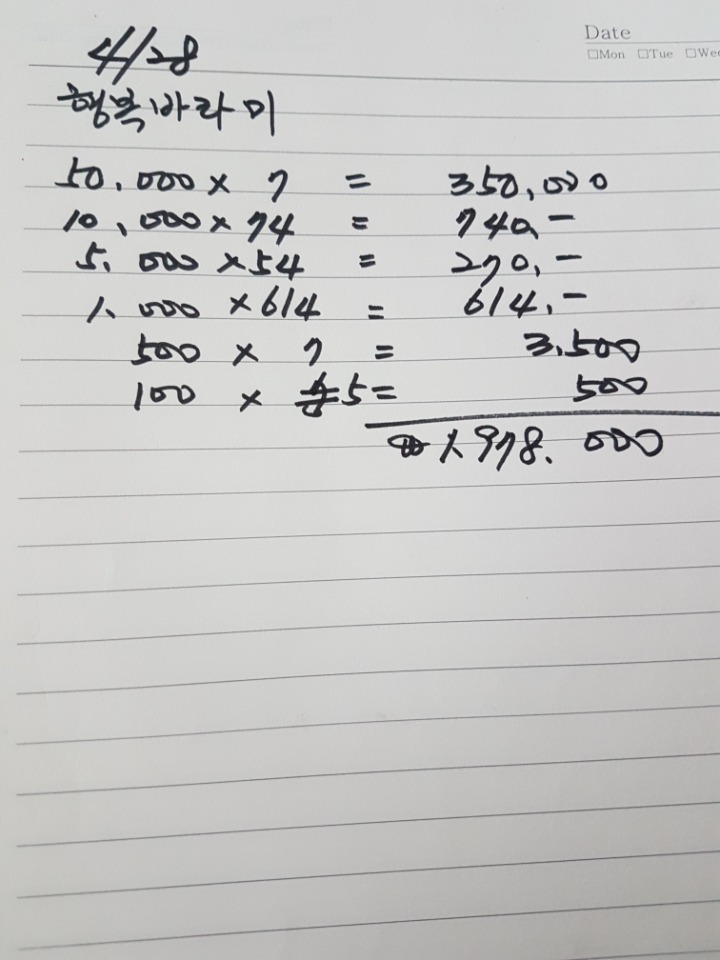 Date
□Mon □Tue □Wed
4/28
행복바라미
50,000 × 7 = 350,000
10,000 × 74 = 740,-
5,000 × 54 = 270,-
1,000 × 614 = 614,-
500 × 7 = 3,500
100 × 5 = 500
1,978,000